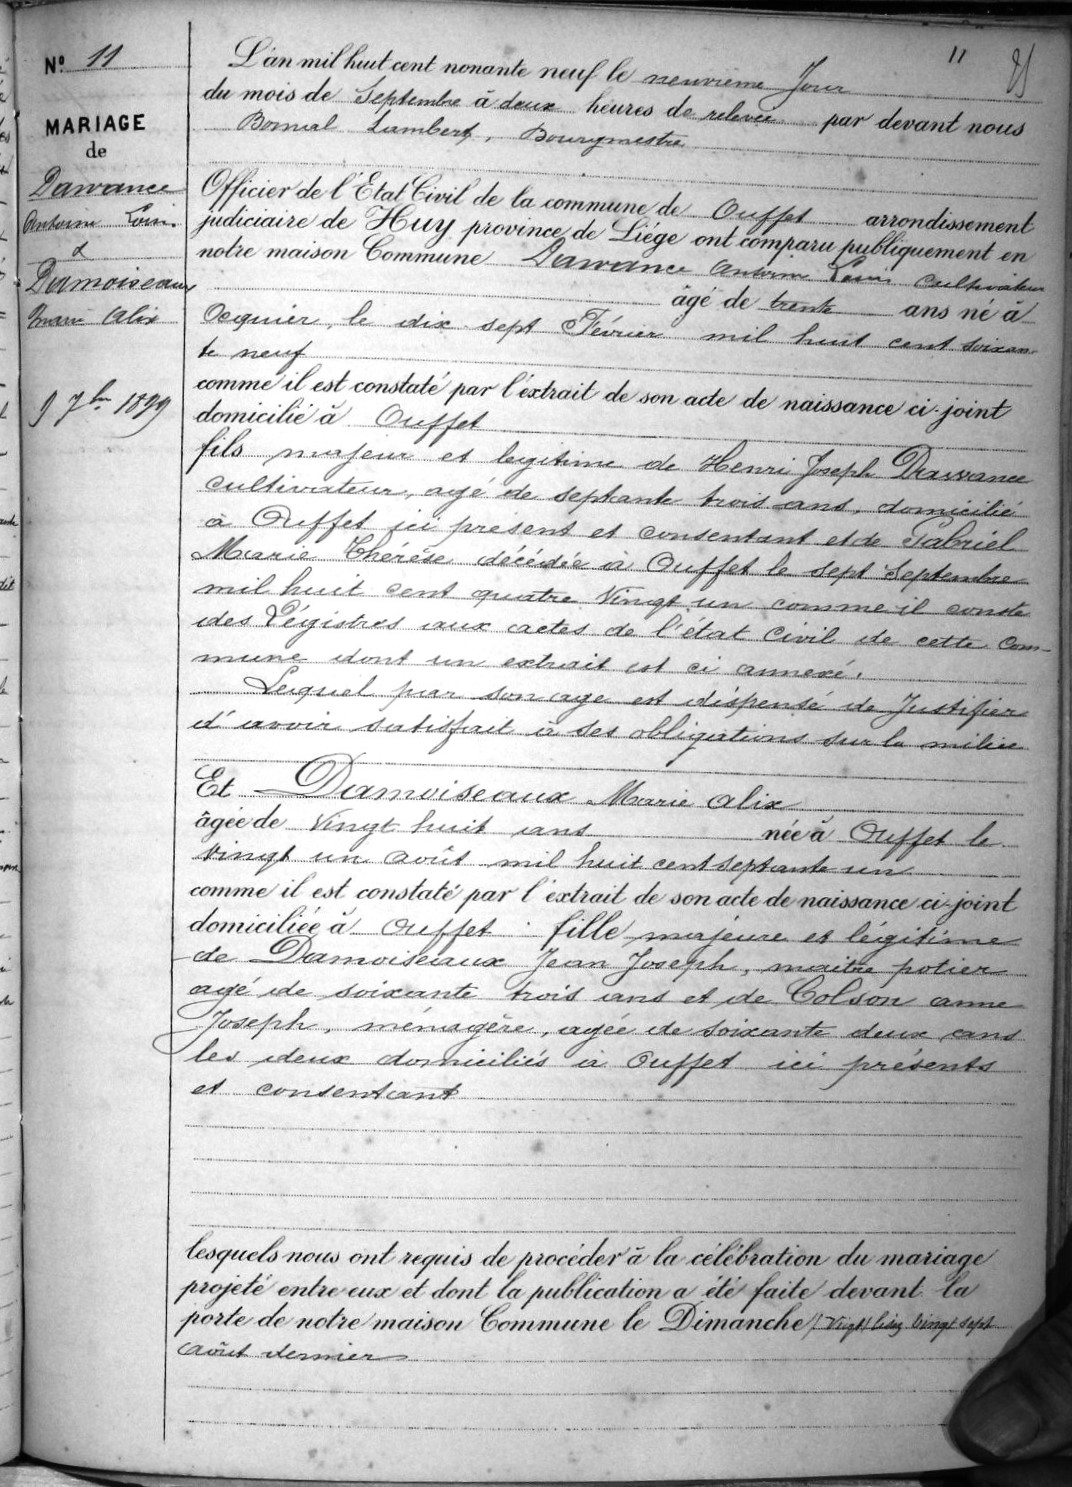 N° 11
MARIAGE
de
Dawance
Antoine Louis
&
Damoiseaux
Marie Alix
9 7bre 1899
11
L'an mil huit cent nonante neuf le neuvième Jour
du mois de Septembre à deux heures de relevée par devant nous
Bomal Lambert, Bourgmestre
Officier de l'Etat Civil de la commune de Ouffet arrondissement
judiciaire de Huy province de Liége ont comparu publiquement en
notre maison Commune Dawance Antoine Louis cultivateur
âgé de trente ans né à
Ocquier, le dix sept Février mil huit cent soixan-
te neuf
comme il est constaté par l'extrait de son acte de naissance ci-joint
domicilié à Ouffet
fils majeur et légitime de Henri Joseph Dawance
cultivateur, agé de septante trois ans, domicilié
à Ouffet ici présent et consentant et de Gabriel
Marie Thérèse décédée à Ouffet le sept Septembre
mil huit cent quatre Vingt un comme il conste
des Régistres aux actes de l'état Civil de cette Com-
mune dont un extrait est ci annexé.
Lequel par son age est dispensé de Justifier
d'avoir satisfait à ses obligations sur la milice
Et Damoiseaux Marie Alix
âgée de Vingt huit ans née à Ouffet le
vingt un août mil huit cent septante un
comme il est constaté par l'extrait de son acte de naissance ci-joint
domiciliée à Ouffet fille majeure et légitime
de Damoiseaux Jean Joseph, maitre potier
agé de soixante trois ans et de Colson Anne
Joseph, ménagère, agée de soixante deux ans
les deux domiciliés à Ouffet ici présents
et consentant
lesquels nous ont requis de procéder à la célébration du mariage
projeté entre eux et dont la publication a été faite devant la
porte de notre maison Commune le Dimanche vingt sept
août dernier